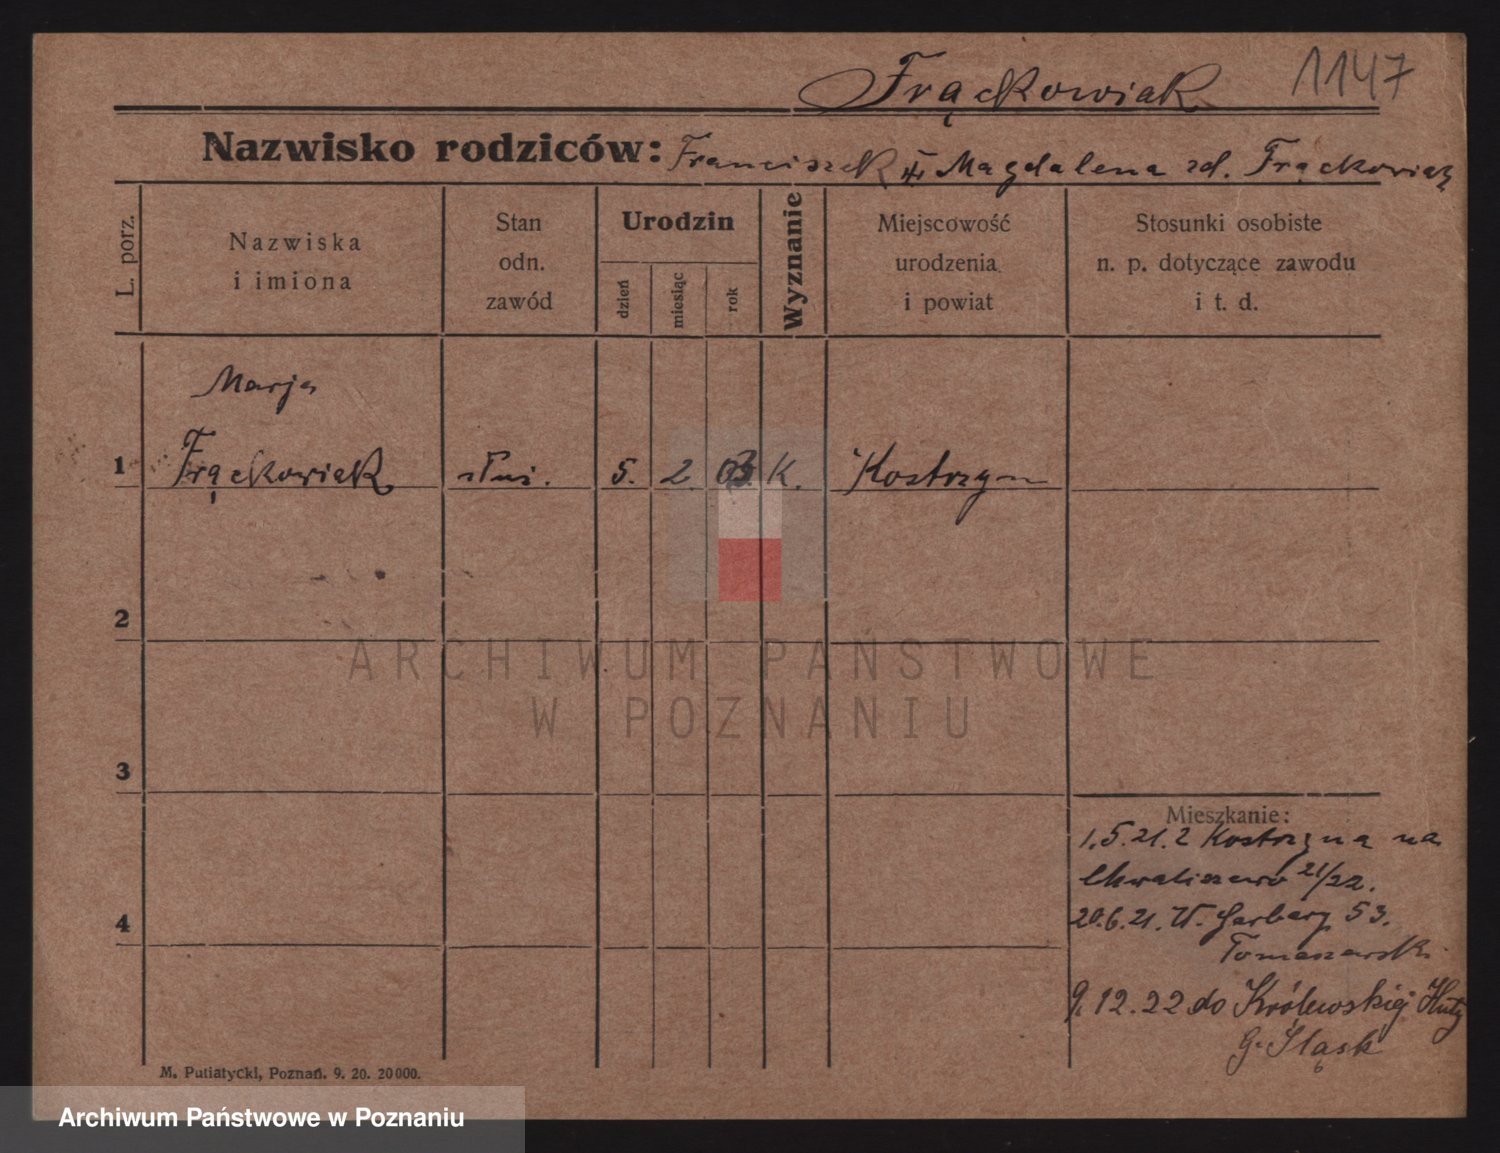 Frąckowiak 1147
Nazwisko rodziców: Franciszek i Magdalena zd. Frąckowiak
L. porz.
Nazwiska
i imiona
Stan
odn.
zawód
Urodzin
dzień
miesiąc
rok
Wyznanie
Miejscowość
urodzenia
i powiat
Stosunki osobiste
n. p. dotyczące zawodu
i t. d.
Marja
1 Frąckowiak służ. 5. 2. 03. K. Kostrzyn
2
ARCHIWUM PAŃSTWOWE
W POZNANIU
3
Mieszkanie:
1.5.21. z Kostrzyna na
Chwaliszewo 21/22.
4
20.6.21. W. Garbary 53.
Tomaszewski
9.12.22 do Królewskiej Huty
G. Śląsk
M. Putiatycki, Poznań. 9. 20. 20000.
Archiwum Państwowe w Poznaniu